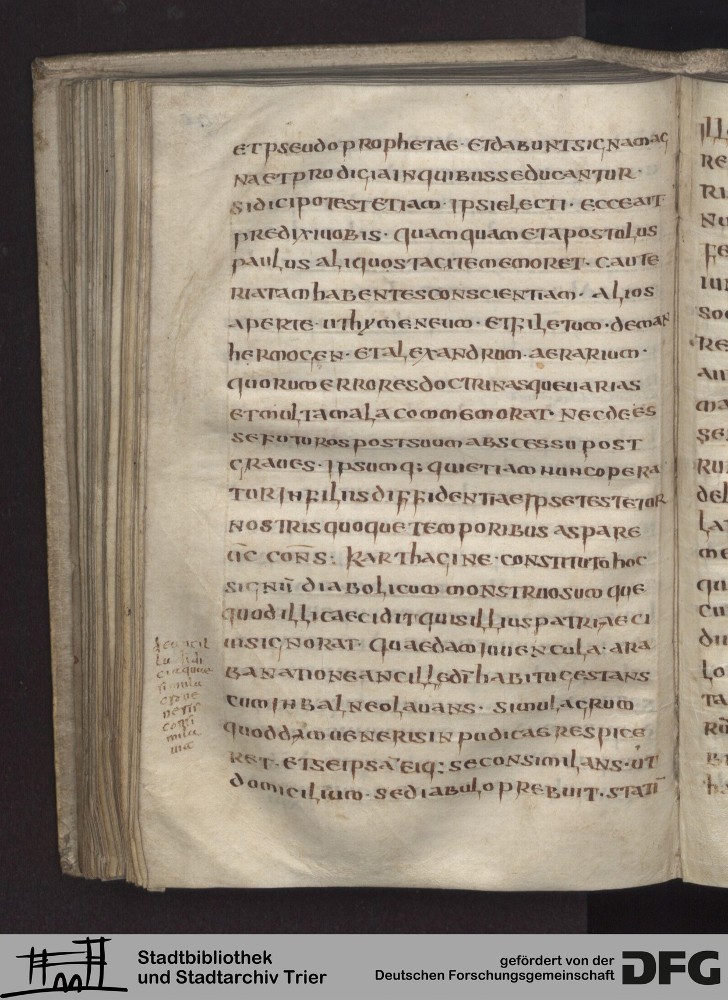 et pseudo prophetae · et dabunt signa mag
na et prodigia in quibus seducantur ·
si dici potest etiam · ipsi electi · ecce ait
predixi uobis · quamquam et apostolus
paulus aliquos tacite memoret · caute
riatam habentes conscientiam · alios
aperte · ut hymeneum · et filetum · deman
hermogen · et alexandrum · aerarium ·
quorum errores doctrinasque uarias
et multa mala commemorat · nec dees
se futuros post suum abscessu post
graues · ipsumq; qui etiam nunc opera
tur in filiis diffidentiae ipse testetur
nostris quoque temporibus aspare
ūc coñs : karthagine · constituto hoc
signū diabolicum monstruosumque
quod illic accidit quis illius patriae ci
uis ignorat · quaedam iuuencula · ara
ba natione ancille dī habitu gestans
cum in balneo lauans · simulacrum
quoddam ueneris inpudicae respice
ret · et se ipsā eiq; se consimilans · ut
domicilium · se diabulo prebuit · statī
Stadtbibliothek
und Stadtarchiv Trier
gefördert von der
Deutschen Forschungsgemeinschaft
DFG